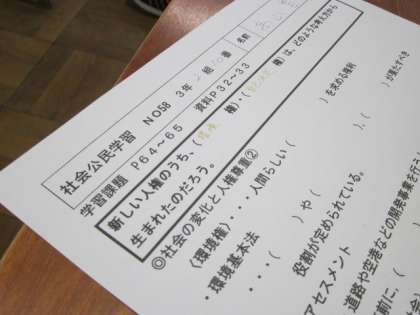 社会公民学習 NO58 3年 組 番 名前
学習課題 P64~65 資料P32~33
新しい人権のうち、(環境 権)・( 権)は、どのような考え方から
生まれたのだろう。
◎社会の変化と人権尊重②
(環境権)・・・人間らしい( )を求める権利
・環境基本法
・・・( )や( )、( )が果たすべき
役割が定められている。
アセスメント
道路や空港などの開発事業を行
前に、(